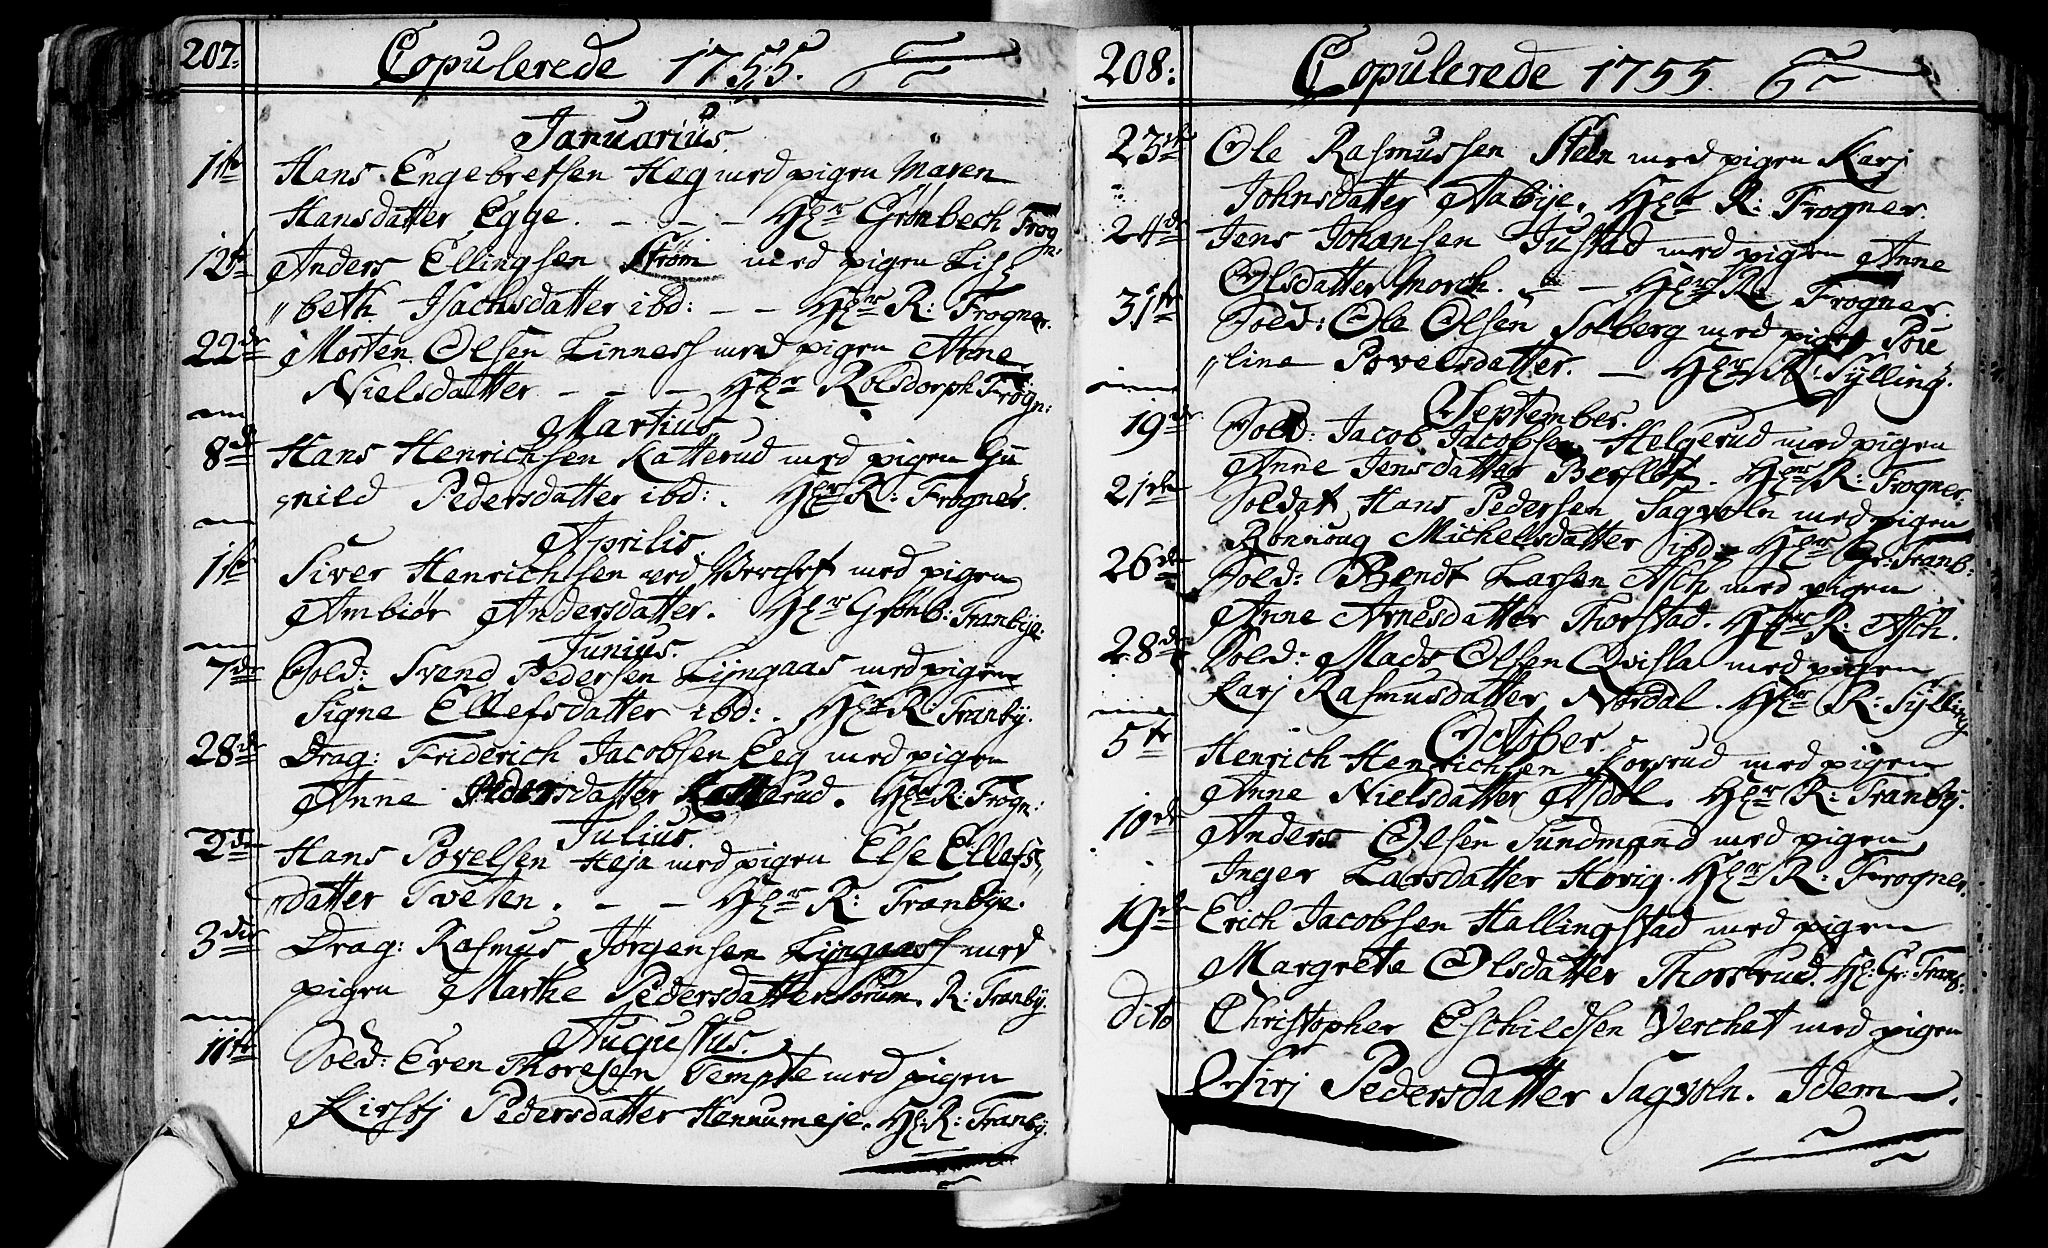 207. Copulerede 1755.
Januarius.
1ste Hans Engebretsen Hæg med pigen Maren
Hansdatter Egge. - - - Hr Grønbech Frogn:
12te Anders Ellingsen Strøm med pigen Lis
"beth Isachsdatter ibd: - - Hr R: Frogner.
22de Morten Olsen Linness med pigen Anne
Nielsdatter - - - Hr Rolsdorph Frogn:
Martius
8de Hans Henrichsen Katterud med pigen Gu
"nild Pedersdatter ibd: . Hr R: Frogner.
Aprilis.
1ste Siver Henrichsen ved Verchet med pigen
Ambiør Andersdatter. Hr Grønb: Tranbye:
Junius.
7de Sold: Svend Pedersen Lijngaas med pigen
Signe Ellefsdatter ibd: . Hr R: Tranby.
28de Drag: Friderich Jacobsen Eeg med pigen
Anne Pedersdatter Katterud. Hr R: Frogn:
Julius.
2den Hans Povelsen Heja med pigen Else Ellefs,,
"datter Tveten. - - Hr R: Tranbye.
3die Drag: Rasmus Jørgensen Lijngaass med
pigen Marthe Pedersdatter Sørum. R: Tranby.
Augustus.
11te Sold: Even Thoresen Tempte med pigen
Kirstj Pedersdatter Hennumeje. Hr R: Tranby.
208: Copulerede 1755.
23de Ole Rasmussen Steen med pigen Karj
Johnsdatter Aabÿe. Hr R: Frogner.
24de Jens Johansen Justad med pigen Anne
Olsdatter Morch. - - Hr R: Frogner.
31te Sold: Ole Olsen Solberg med pigen Pou
"line Povelsdatter. - Hr R: Sylling.
September.
19de Sold: Jacob Jacobsen Helgerud med pigen
Anne Jensdatter Berfløt. Hr R: Frogner.
21de Soldat Hans Pedersen Sagvoln med pigen
Rønnoug Michelsdatter ibd: Hr Gr: Tranb:
26de Sold: Bendt Larsen Asch med pigen
Anne Arnesdatter Thorstad. Hr R: Asch.
28de Sold: Mads Olsen Qvisla med pigen
Karj Rasmusdatter Nordal. Hr R: Sylling
October.
5te Henrich Henrichsen Korsrud med pigen
Anne Nielsdatter Asdøl. Hr R: Tranby.
10de Anders Olsen Sundmand med pigen
Inger Larsdatter Hørig. Hr R: Frogner.
19de Erich Jacobsen Hallingstad med pigen
Margrete Olsdatter Thorsrud. H: Gr: Tranb:
dito Christopher Eschildsen Verchet med pigen
Sirj Pedersdatter Sagvoln. Idem.